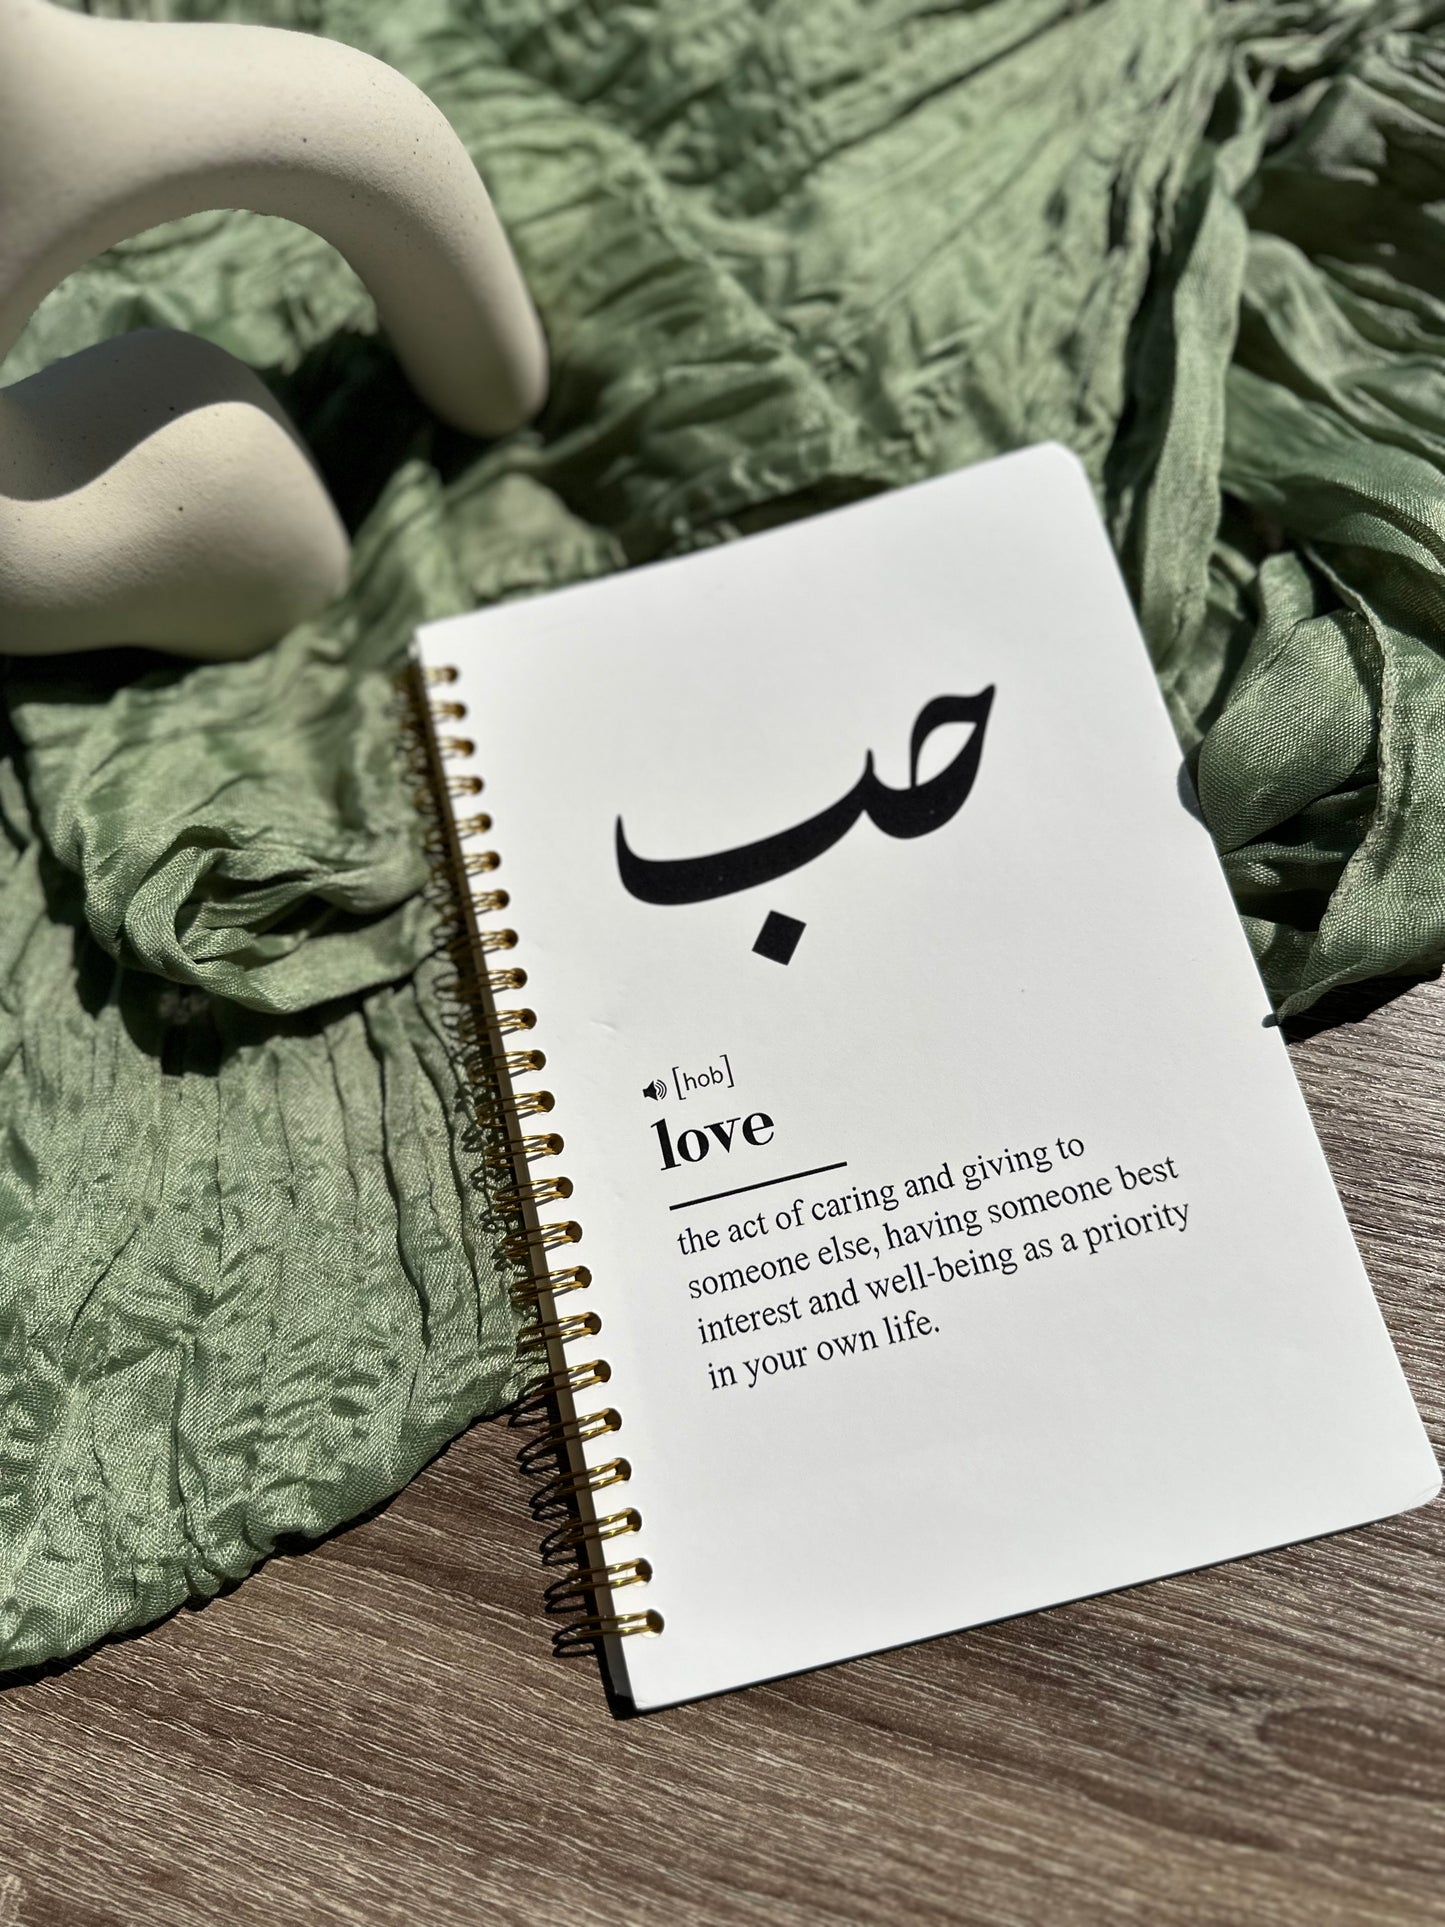 حب
[hob]
love
the act of caring and giving to
someone else, having someone best
interest and well-being as a priority
in your own life.